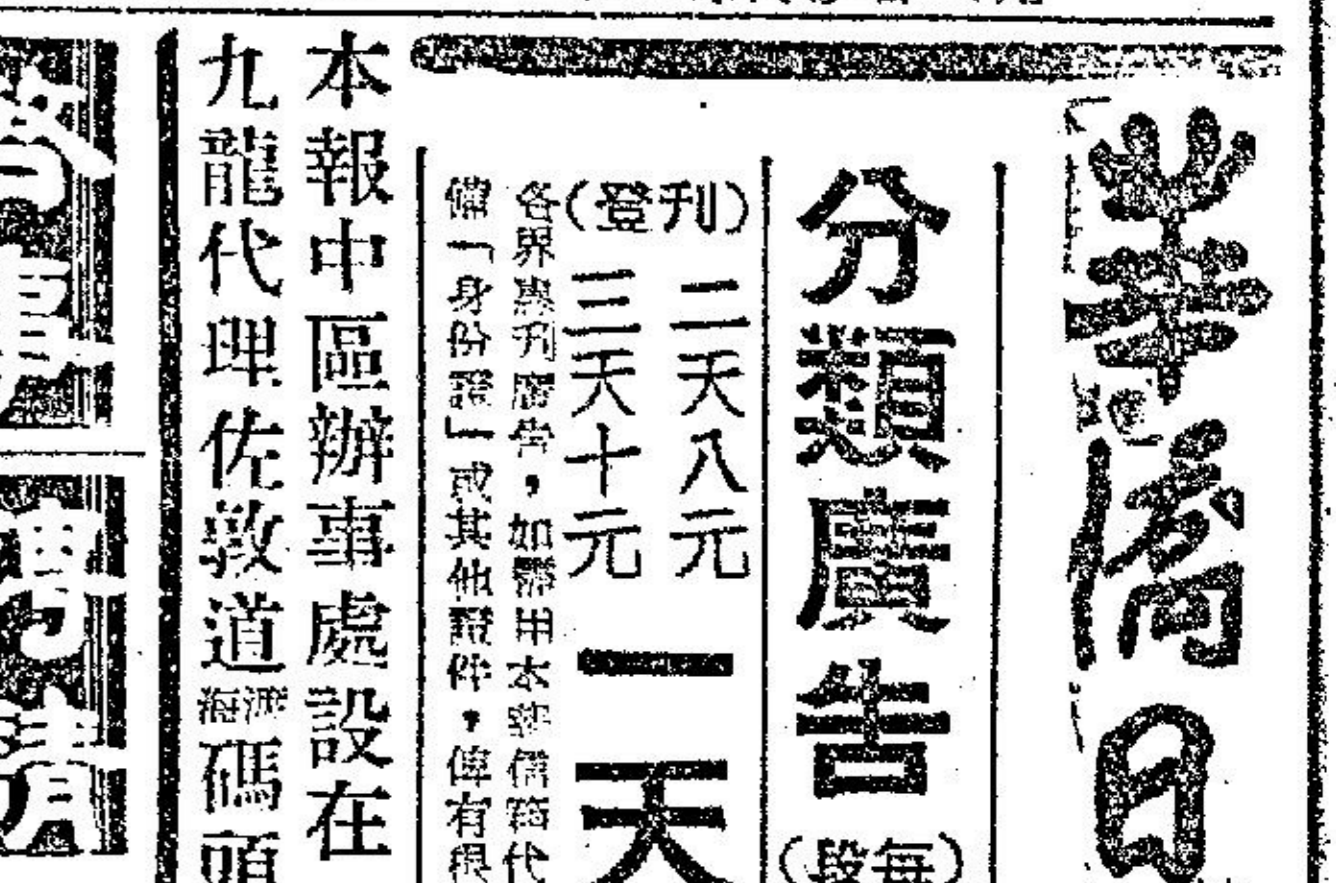 華僑日
分類廣告
(每段)
(刊登)
二天八元
三天十元
一天
各界惠刊廣告，如需用本報信箱代
備「身份證」或其他證件，俾有根
本報中區辦事處設在
九龍代理佐敦道海旁碼頭
請